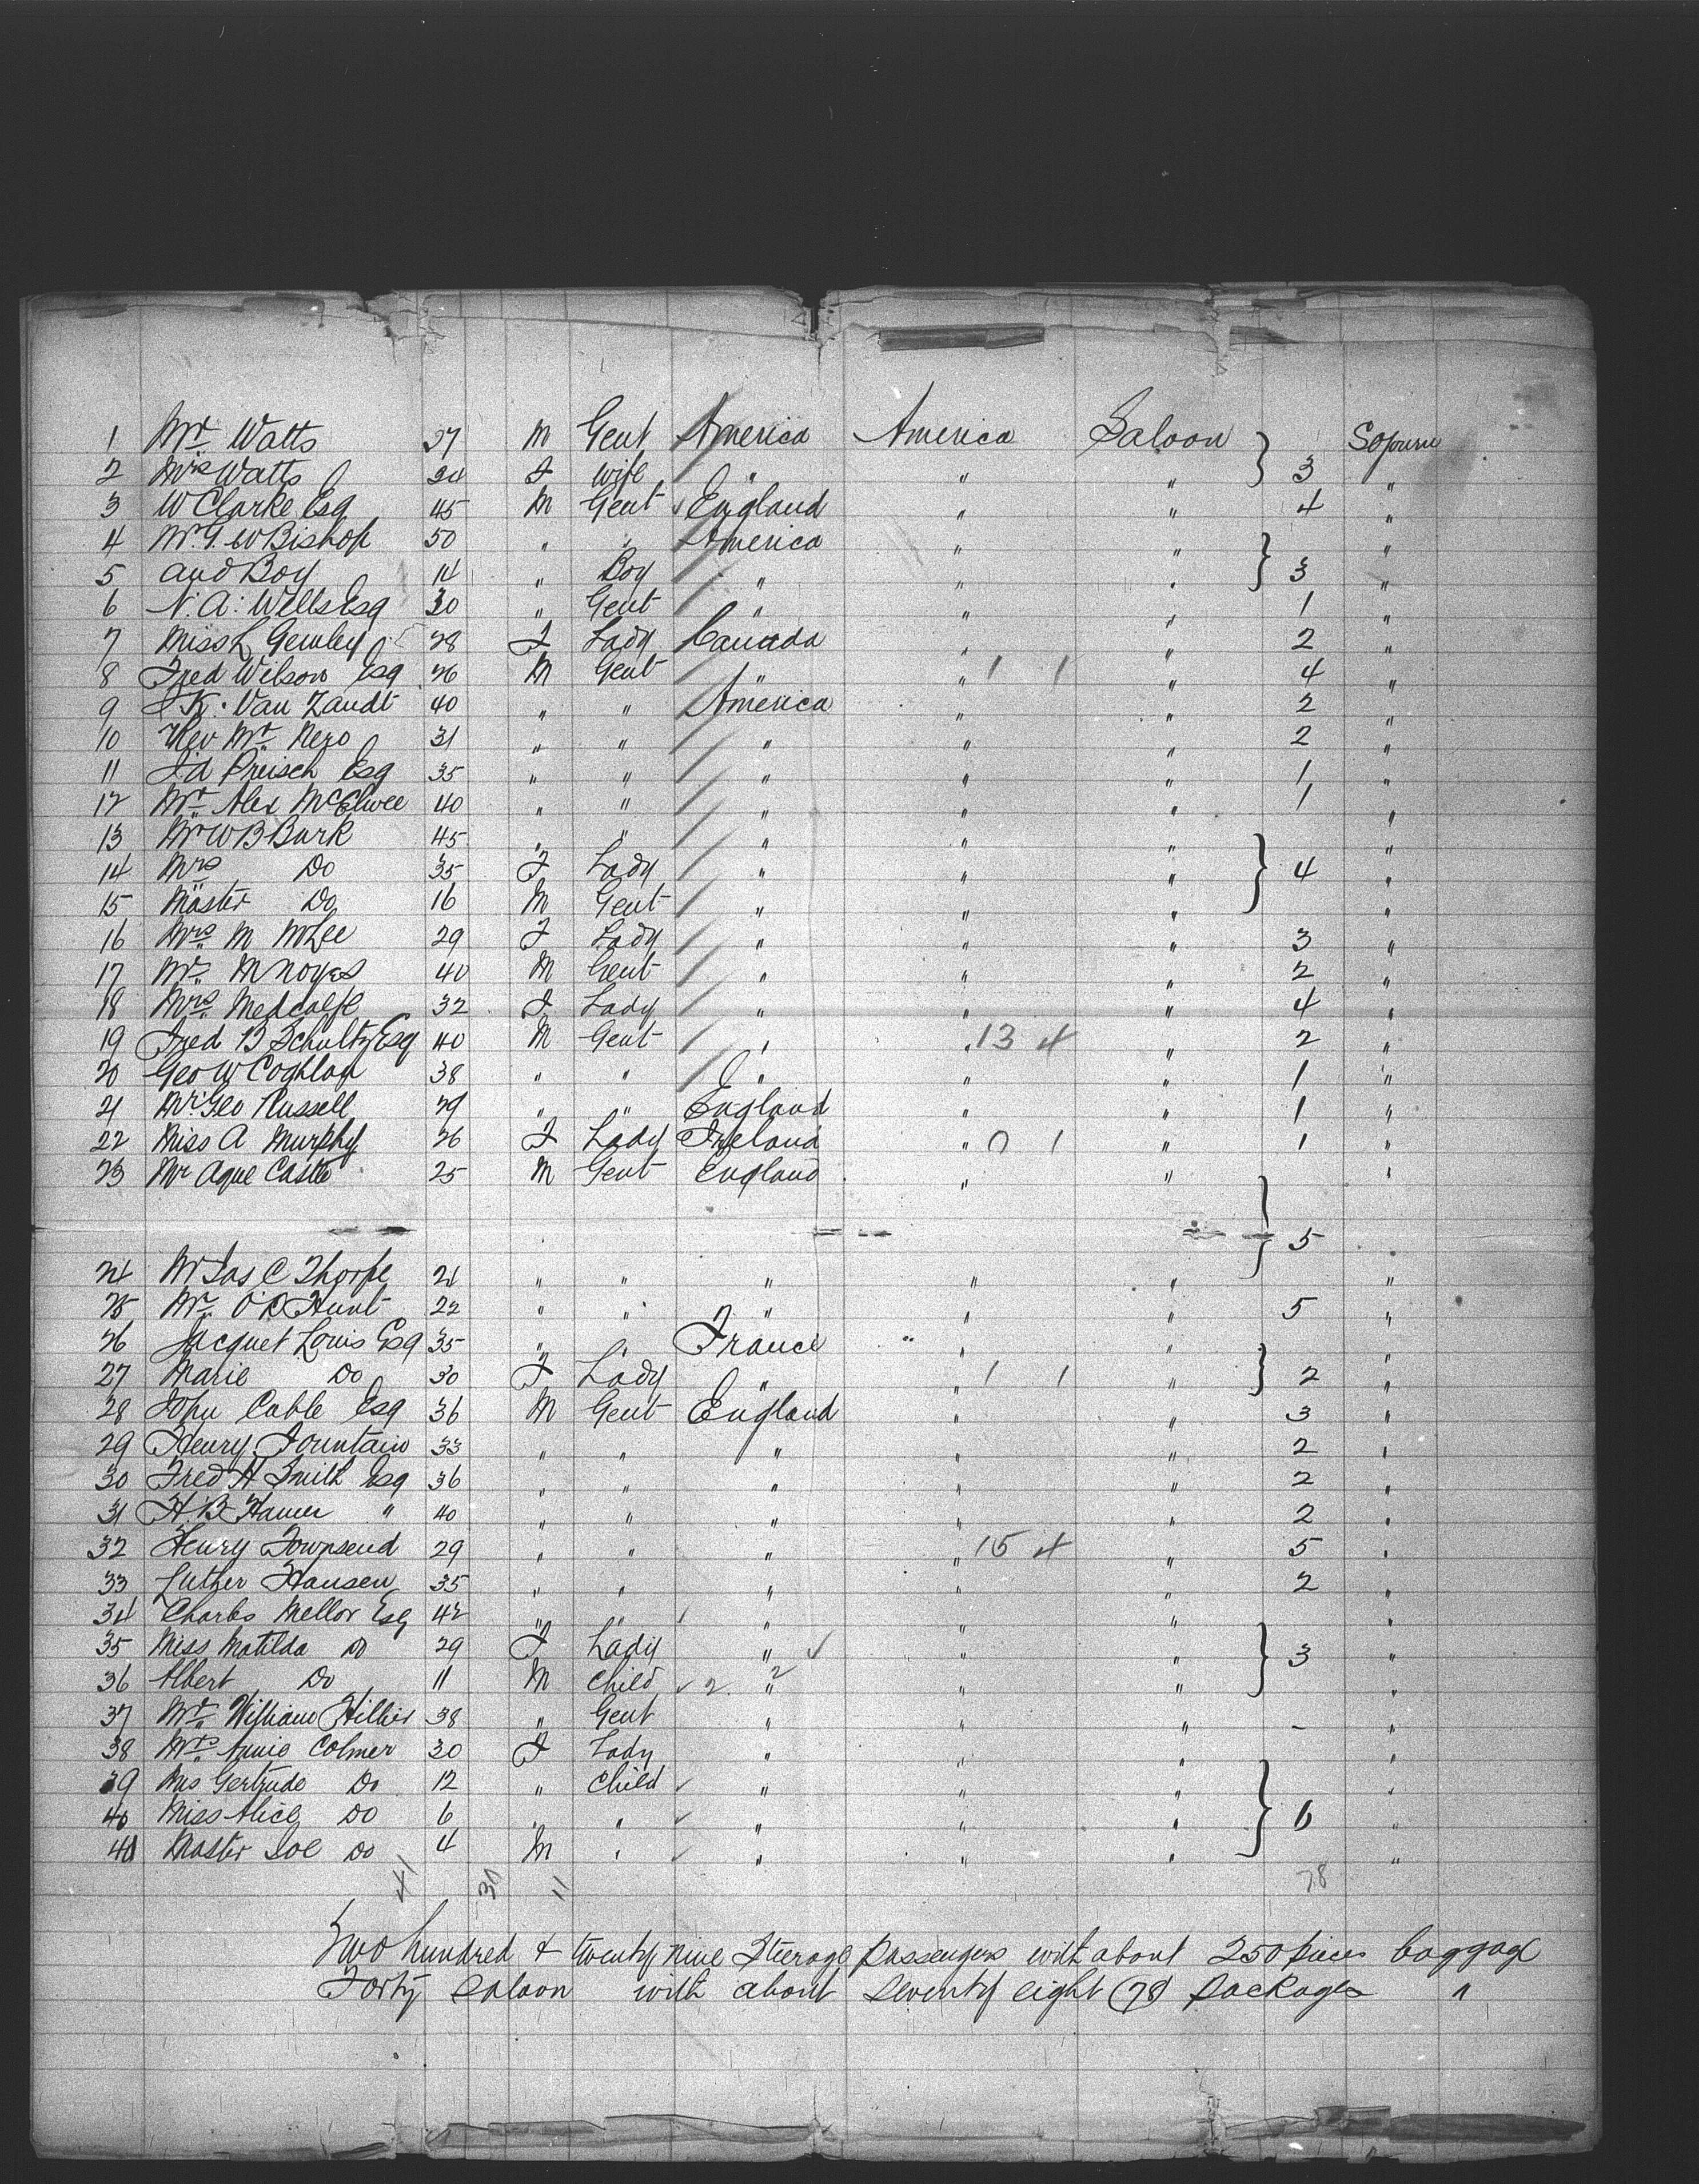 1 Mr. Watts 27 M Gent America America Saloon Sojourn
2 Mrs Watts 24 F Wife " " " 3 "
3 W Clarke Esq 45 M Gent England " " 4 "
4 Mr. G. W Bishop 50 " " America " " "
5 and Boy 14 " Boy " " " 3 "
6 N. A. Wells Esq 30 " Gent " " " 1 "
7 Miss L Gemley 28 F Lady Canada " " 2 "
8 Fred Wilson Esq 26 M Gent " " 1 1 " 4 "
9 K. Van Zandt 40 " " America " " 2 "
10 Rev Mr. Nero 31 " " " " " 2 "
11 Preisch Esq 35 " " " " " 1 "
12 Mr. Alex McElwee 40 " " " " " 1 "
13 Mr W B Burk 45 " " " " " "
14 Mrs Do 35 F Lady " " " 4 "
15 Master Do 16 M Gent " " " "
16 Mrs M McLee 29 F Lady " " " 3 "
17 Mr. M Noyes 40 M Gent " " " 2 "
18 Mrs Medcalfe 32 F Lady " " " 4 "
19 Fred B Schultz Esq 40 M Gent " " 13 4 " 2 "
20 Geo W Coghlan 38 " " " " " 1 "
21 Mr. Geo Russell 29 " " England " " 1 "
22 Miss A Murphy 26 F Lady Ireland " 0 1 " 1 "
23 Mr Castle 25 M Gent England " " "
5
24 Mr Jas C Thorpe 21 " " " " " "
25 Mr. Hunt 22 " " " " " 5 "
26 Jacquet Louis Esq 35 " " France " " "
27 Marie Do 30 F Lady " " 1 1 " 2 "
28 John Cable Esq 36 M Gent England " " 3 "
29 Henry Fountain 33 " " " " " 2 "
30 Fred H Smith Esq 36 " " " " " 2 "
31 H. B. Hamer " 40 " " " " " 2 "
32 Henry Townsend 29 " " " " 15 4 " 5 "
33 Luther Hansen 35 " " " " " 2 "
34 Charles Mellor Esq 42 " " " " " "
35 Miss Matilda Do 29 F Lady " " " 3 "
36 Albert Do 11 M Child 2 " 2 " " "
37 Mr. William Hillier 38 " Gent " " " - "
38 Mrs. Annie Colmer 30 F Lady " " " "
39 Mis Gertrude Do 12 " Child " " " "
40 Miss Alice Do 6 " " " " " 6 "
41 Master Joe Do 4 M " " " " "
41 30 11 78
Two hundred & twenty nine Steerage Passengers with about 250 pieces baggage
Forty Saloon with about Seventy eight (78) Packages "